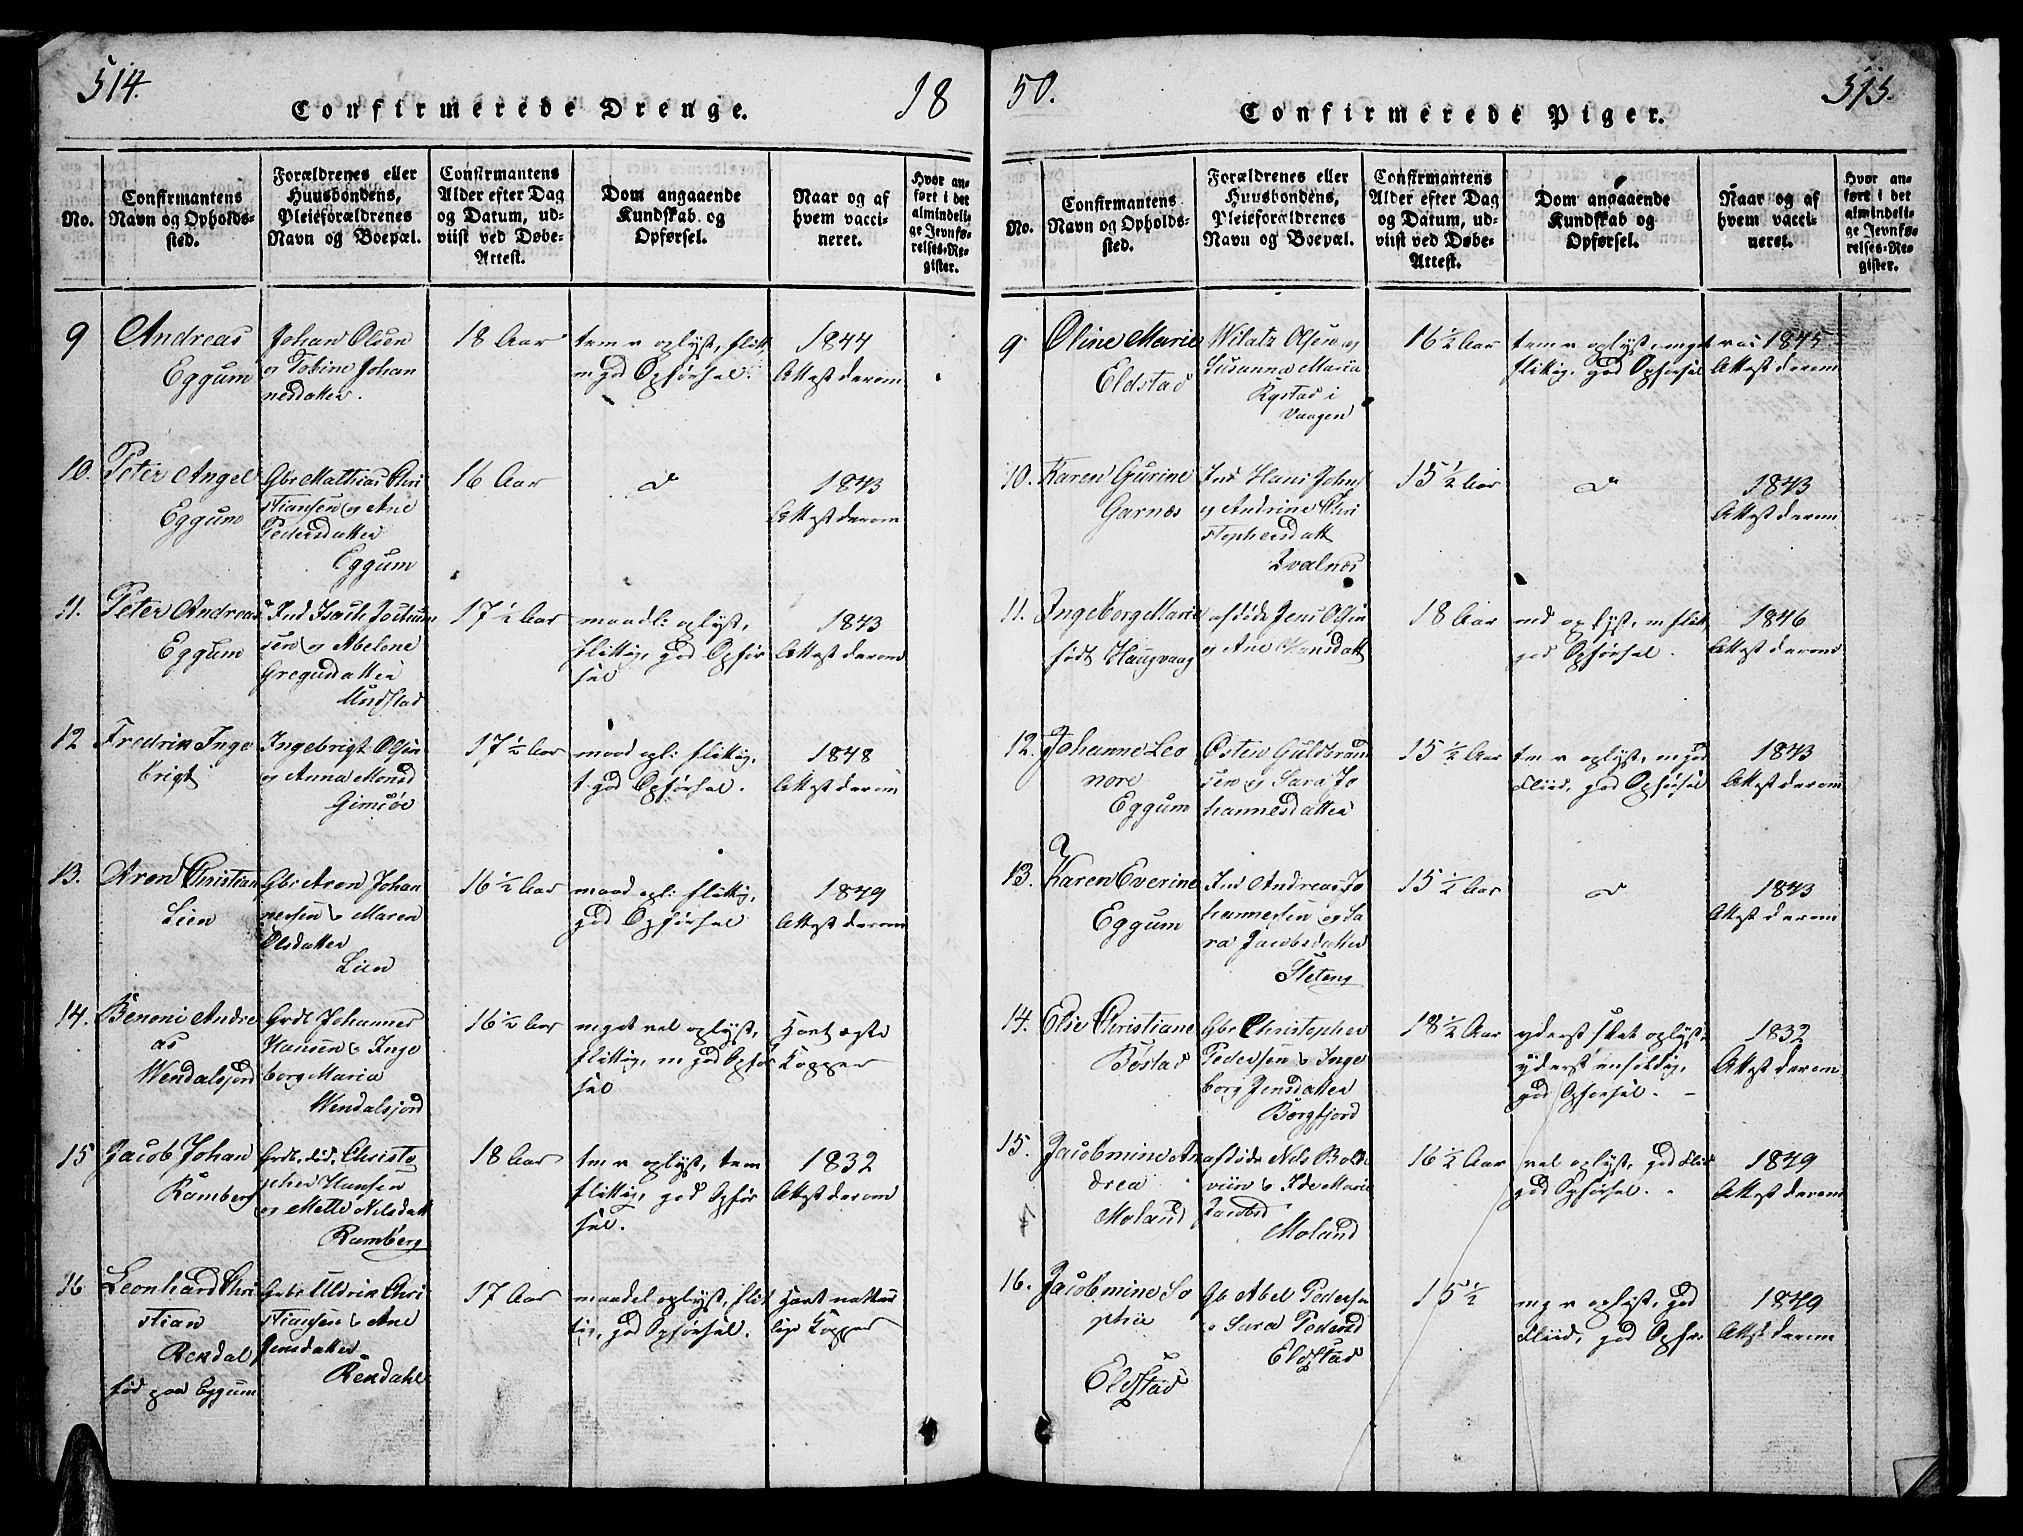 514.
18
Confirmerede Drenge.
No.
Confirmantens
Navn og Opholds-
sted.
Forældrenes eller
Huusbondens,
Pleieforældrenes
Navn og Boepæl.
Confirmantens
Alder efter Dag
og Datum, ud-
viist ved Døbe-
Attest.
Dom angaaende
Kundskab og
Opførsel.
Naar og af
hvem vacci-
neret.
Hvor an-
ført i det
almindeli-
ge Jevnfø-
relses-Re-
gister.
9 Andreas
Eggum
Johan Olsen
og Tobine Johan
nesdatter.
18 Aar
tem v oplyst, flitt,
m god Opførsel.
1844
Attest derom
10. Peter Angel
Eggum
Gbr Mathias Chri
stiansen og Ane
Pedersdatter
Eggum
16 Aar
1843
Attest derom
11. Peter Andreas
Eggum
Ind Isach Jochum
sen og Abelone
Gregusdatter
17 ½ Aar
maadl: oplyst,
flittig, god Opfør
sel
1843
Attest derom
12 Fredrik Inge
brigt
Ingebrigt Olsen
og Anna Monsd
Gimsöe
17 ½ Aar
maad opl: flittig,
t god Opførsel.
1848
Attest derom
13. Aron Christian
Lien
Gbr Aron Johan
nessen & Maren
Olsdatter
Lien
16 ½ Aar
maad opl: flittig,
god Opførsel
1849
Attest derom
14. Benoni Andre
as
Wendalsjord
Grdl Johannes
Hansen & Inge
borg Maria
Wendalsjord
16 ½ Aar
meget vel oplyst,
flittig, m god Opfør
sel
Havt ægte
Kopper
15 Jacob Johan
Ramberg
Grdl. död. Christo
pher Hansen
og Mette Nilsdatt
Ramberg
18 Aar
tem v oplyst, tem
flittig, god Opfør
sel.
1832
Attest derom
16 Leonhard Chri
stian
Rekdal
fød paa Eggum
Gbr Uldrik Chri
stiansen & Ane
Jensdatter
Rekdahl
17 Aar
maadel oplyst, flit
tig, god Opførsel.
Havt natur
lige Kopper
50.
515.
Confirmerede Piger.
No.
Confirmantens
Navn og Opholds-
sted.
Forældrenes eller
Huusbondens,
Pleieforældrenes
Navn og Boepæl.
Confirmantens
Alder efter Dag
og Datum, ud-
viist ved Døbe-
Attest.
Dom angaaende
Kundskab og
Opførsel.
Naar og af
hvem vacci-
neret.
Hvor an-
ført i det
almindeli-
ge Jevnfø-
relses-Re-
gister.
9 Oline Marie
Eldstad
Wilatz Olsen og
Susanna Maria
Rystad i
Vaagen
16 ½ Aar
tem v oplyst, meget
flittig. god Opførsel
vac 1845
Attest derom
10. Karen Gurine
Garnæs
Ind Hans Johns
og Andrine Chri
stophersdatt
Qvalnæs
15 ½ Aar
1843
Attest derom
11. Ingeborg Marie
födt Haugvaag
afdöde Jens Olsen
og Ane Hansdatt
18 Aar
md oplyst, m flitt,
god Opførsel.
1846
Attest derom
12. Johanne Leo
nore
Eggum
Østen Guldbrand
sen og Sara Jo
hannesdatter
15 ½ Aar
tem v oplyst, m god
Fliid, god Opførsel
1843
Attest derom
13. Karen Everine
Eggum
Ind Andreas Jo
hannessen og Sa
ra Jacobsdatter
Steteng
15 ½ Aar
1843
Attest derom
14. Elie Christiane
Böstad
Gbr Christopher
Pedersen & Inge
borg Jensdatter
Borgfjord
18 ½ Aar
yderst slet oplyst
yderst enfoldig,
god Opførsel. —
1832
Attest derom
15. Jacobmine An
drea
Moland
afdöde Nils Bold
viin & Ide Marie
Jacobsd
Moland
16 ½ Aar
vel oplyst, god Flid
god Opførsel.
1849
Attest derom
16. Jacobmine So
phie
Eldstad
Gb Abel Peders
og Sara Pedersd
Eldstad
15 ½
mg v oplyst, god
Fliid, god Opfør
1849
Attest derom